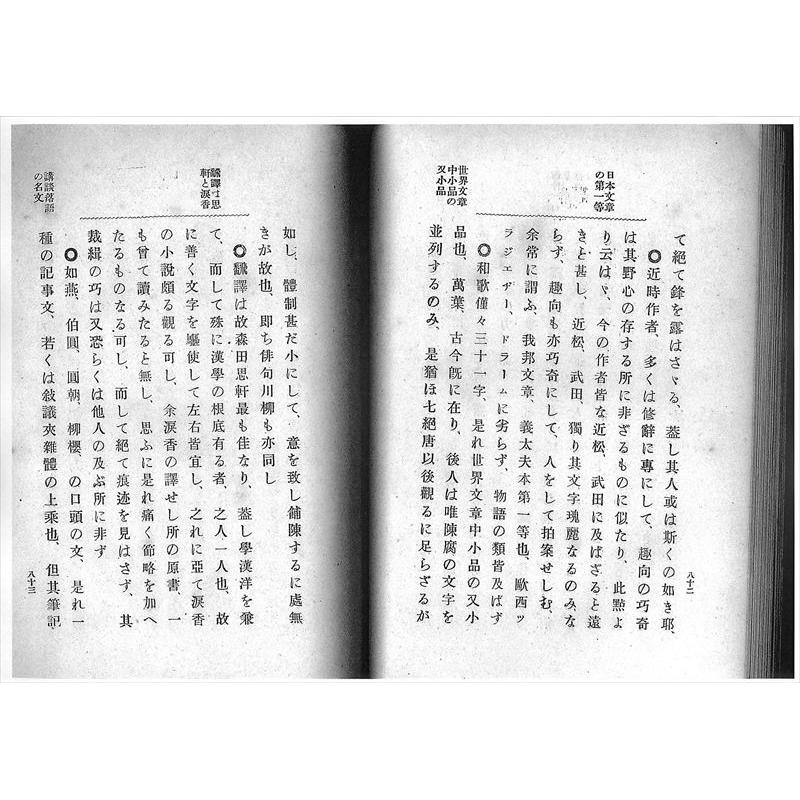 日本文章
の第一等
世界文章
中小品の
又小品
八十二
て絶て鋒を露はさゞる、蓋し其人或は斯くの如き耶、
◎近時作者、多くは修辭に專にして、趣向の巧奇
は其野心の存する所に非ざるものに似たり、此點よ
り云はゞ、今の作者皆な近松、武田に及ばざると遠
きと甚し、近松、武田、獨り其文字瑰麗なるのみな
らず、趣向も亦巧奇にして、人をして拍案せしむ、
余常に謂ふ、我邦文章、義太夫本第一等也、歐西ッ
ラジエヂー、ドラームに劣らず、物語の類皆及ばず
◎和歌僅々三十一字、是れ世界文章中小品の又小
品也、萬葉、古今旣に在り、後人は唯陳腐の文字を
並列するのみ、是猶ほ七絕唐以後觀るに足らざるが
飜譯は思
軒と淚香
講談落語
の名文
八十三
如し、體制甚だ小にして、意を致し鋪陳するに處無
きが故也、即ち俳句川柳も亦同し
◎飜譯は故森田思軒最も佳なり、蓋し學漢洋を兼
て、而して殊に漢學の根底有る者、之人一人也、故
に善く文字を驅使して左右皆宜し、之れに亞て淚香
の小說頗る觀る可し、余淚香の譯せし所の原書、一
も曾て讀みたると無し、思ふに是れ痛く節略を加へ
たるものなる可し、而して絕て痕迹を見はさず、其
裁緝の巧は又恐らくは他人の及ぶ所に非ず
◎如燕、伯圓、圓朝、柳櫻、の口頭の文、是れ一
種の記事文、若くは敍議夾雜體の上乘也、但其筆記